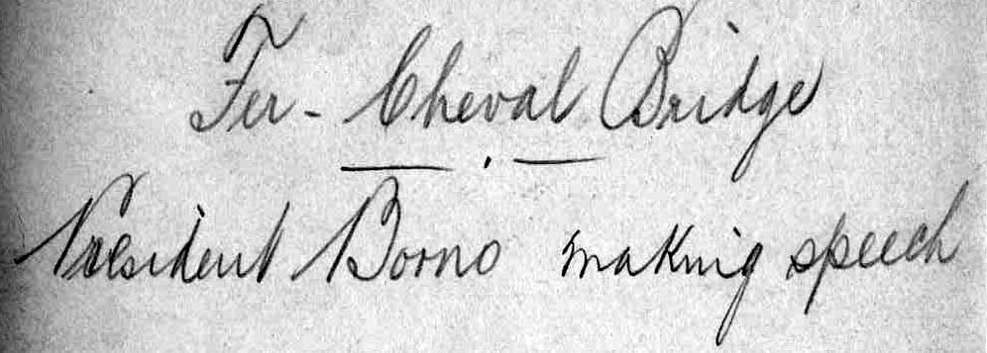 Fer-Cheval Bridge
President Borno making speech